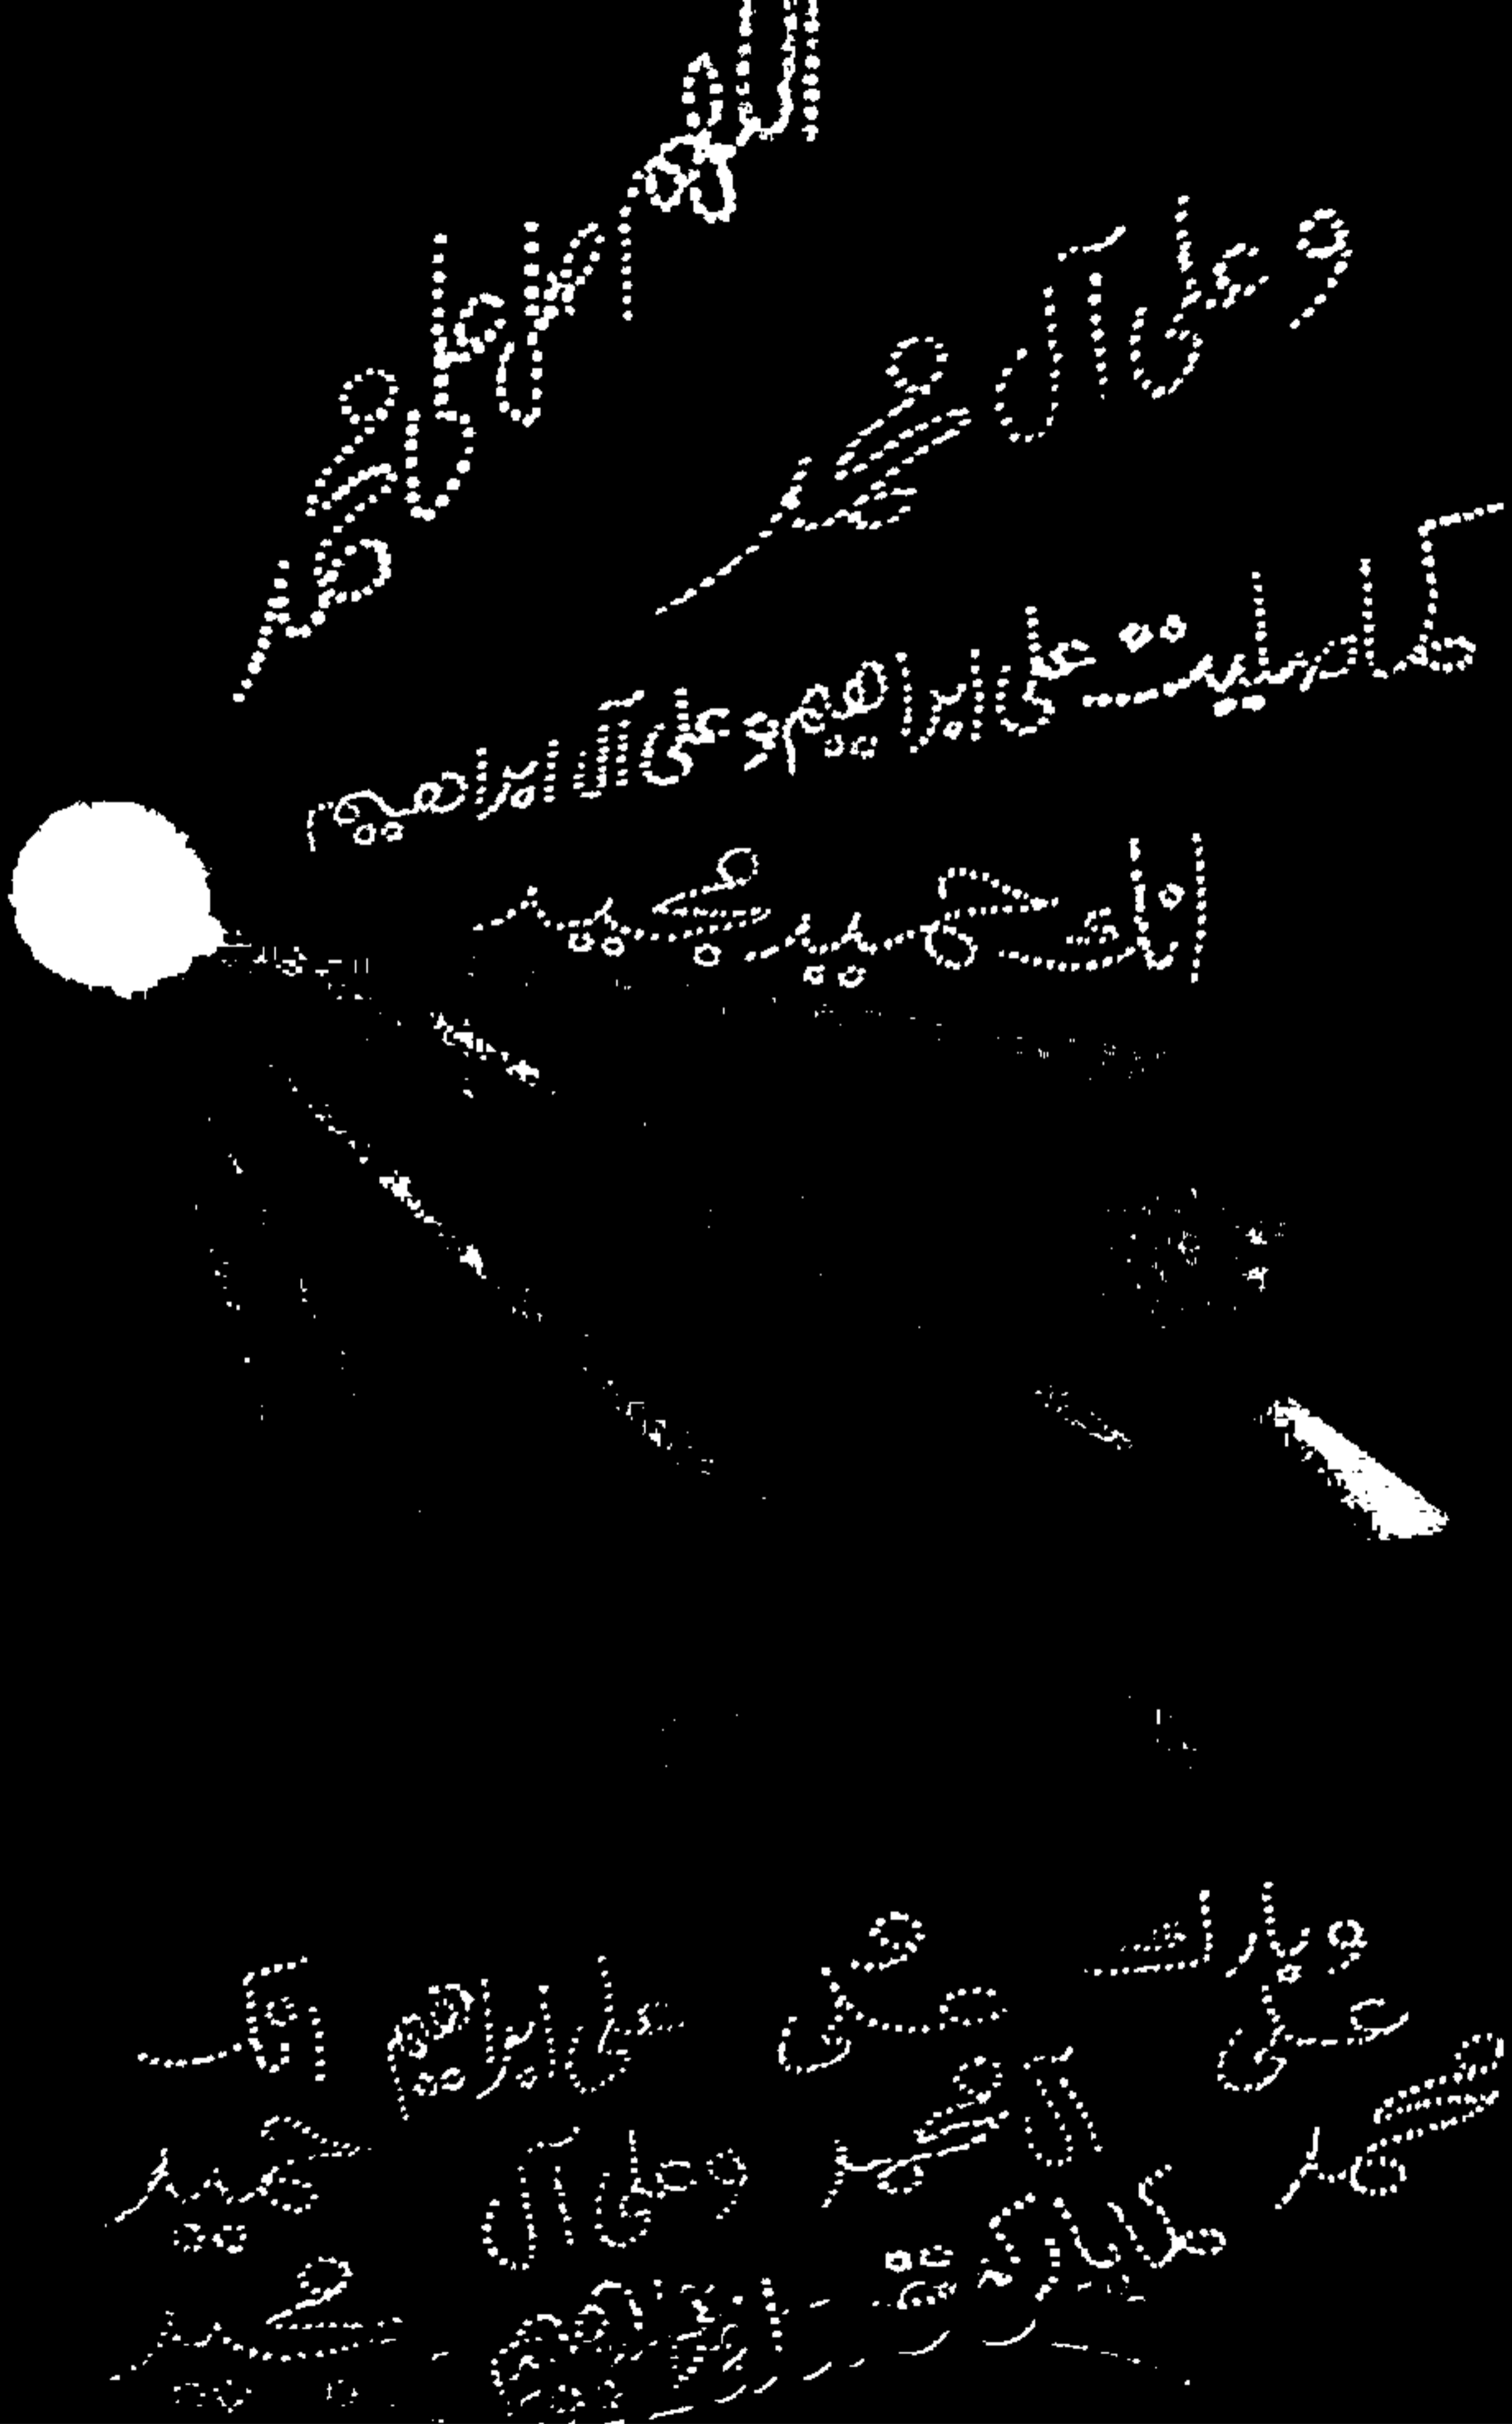 اللهم صل على محمد
وعلى آل محمد
كما صليت على ابراهيم وعلى آل ابراهيم
انك حميد مجيد
وبارك
على
محمد
وعلى
آل محمد
كما باركت
على ابراهيم
وعلى آل
ابراهيم
انك
حميد
مجيد